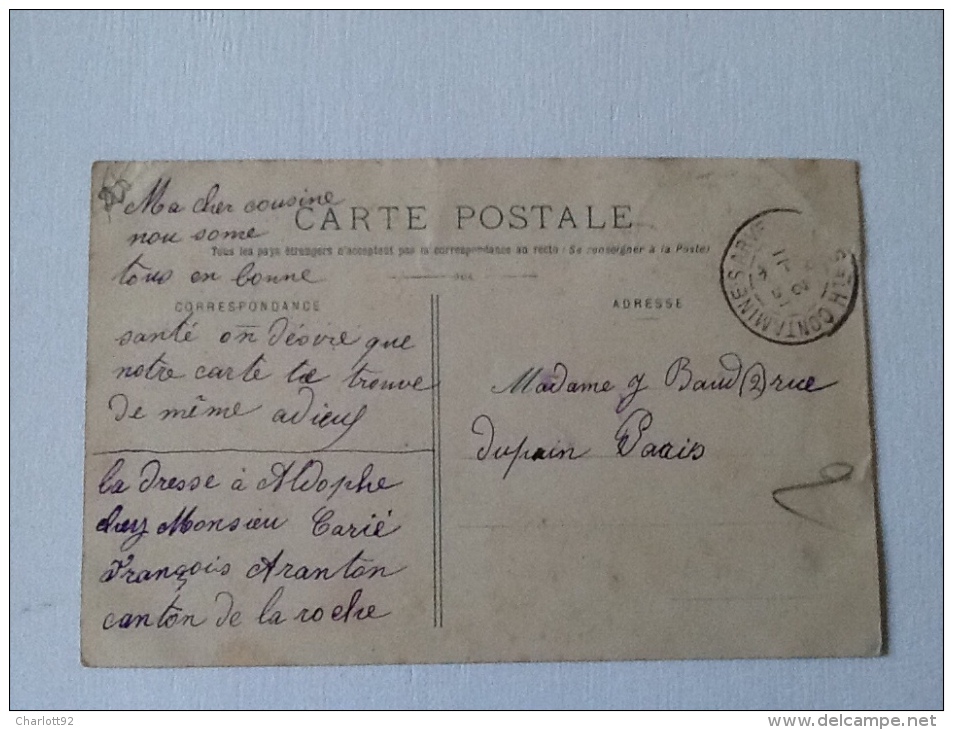 Ma cher cousine
CARTE POSTALE
nou some
Tous les pays étrangers n'acceptent pas la correspondance au recto (Se renseigner à la Poste)
tous en bonne
CORRESPONDANCE
santé on désire que
notre carte te trouve
de même adieu
la dresse à Aldophe
chez Monsieu Carié
François Aranton
canton de la roche
ADRESSE
Madame J Baud (2) rue
dupain Paris
CONTAMINE-S-ARVE
Charlott92
www.delcampe.net